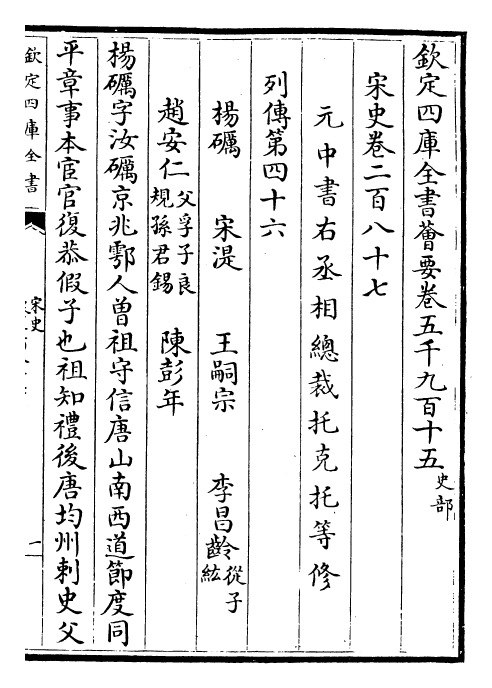 欽定四庫全書薈要卷五千九百十五 史部
宋史卷二百八十七
元中書右丞相總裁托克托等修
列傳第四十六
楊礪 宋湜 王嗣宗 李昌齡 從子紘
趙安仁 父孚子良規孫君錫 陳彭年
楊礪字汝礪京兆鄠人曾祖守信唐山南西道節度同
平章事本宦官復恭假子也祖知禮後唐均州刺史父
欽定四庫全書
宋史
一